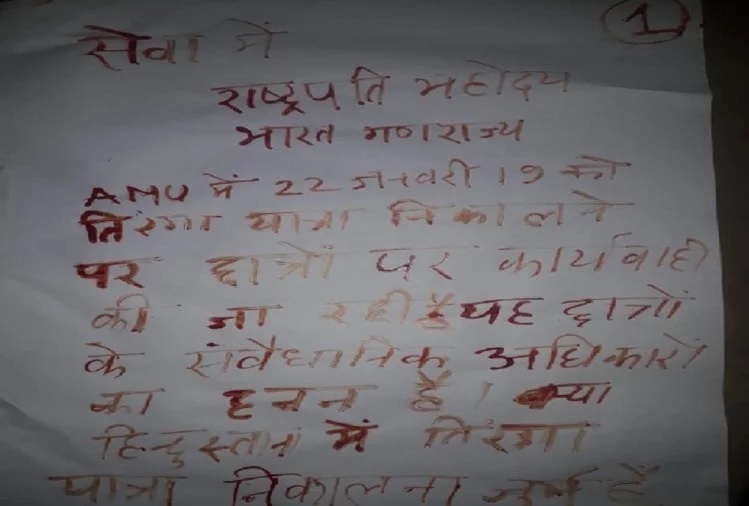 1
सेवा में
राष्ट्रपति महोदय
भारत गणराज्य
AMU में 22 जनवरी 19 को
तिरंगा यात्रा निकालने
पर छात्रों पर कार्यवाही
की जा रही है यह छात्रों
के संवैधानिक अधिकारों
का हनन है। क्या
हिन्दुस्तान में तिरंगा
यात्रा निकालना जुर्म है